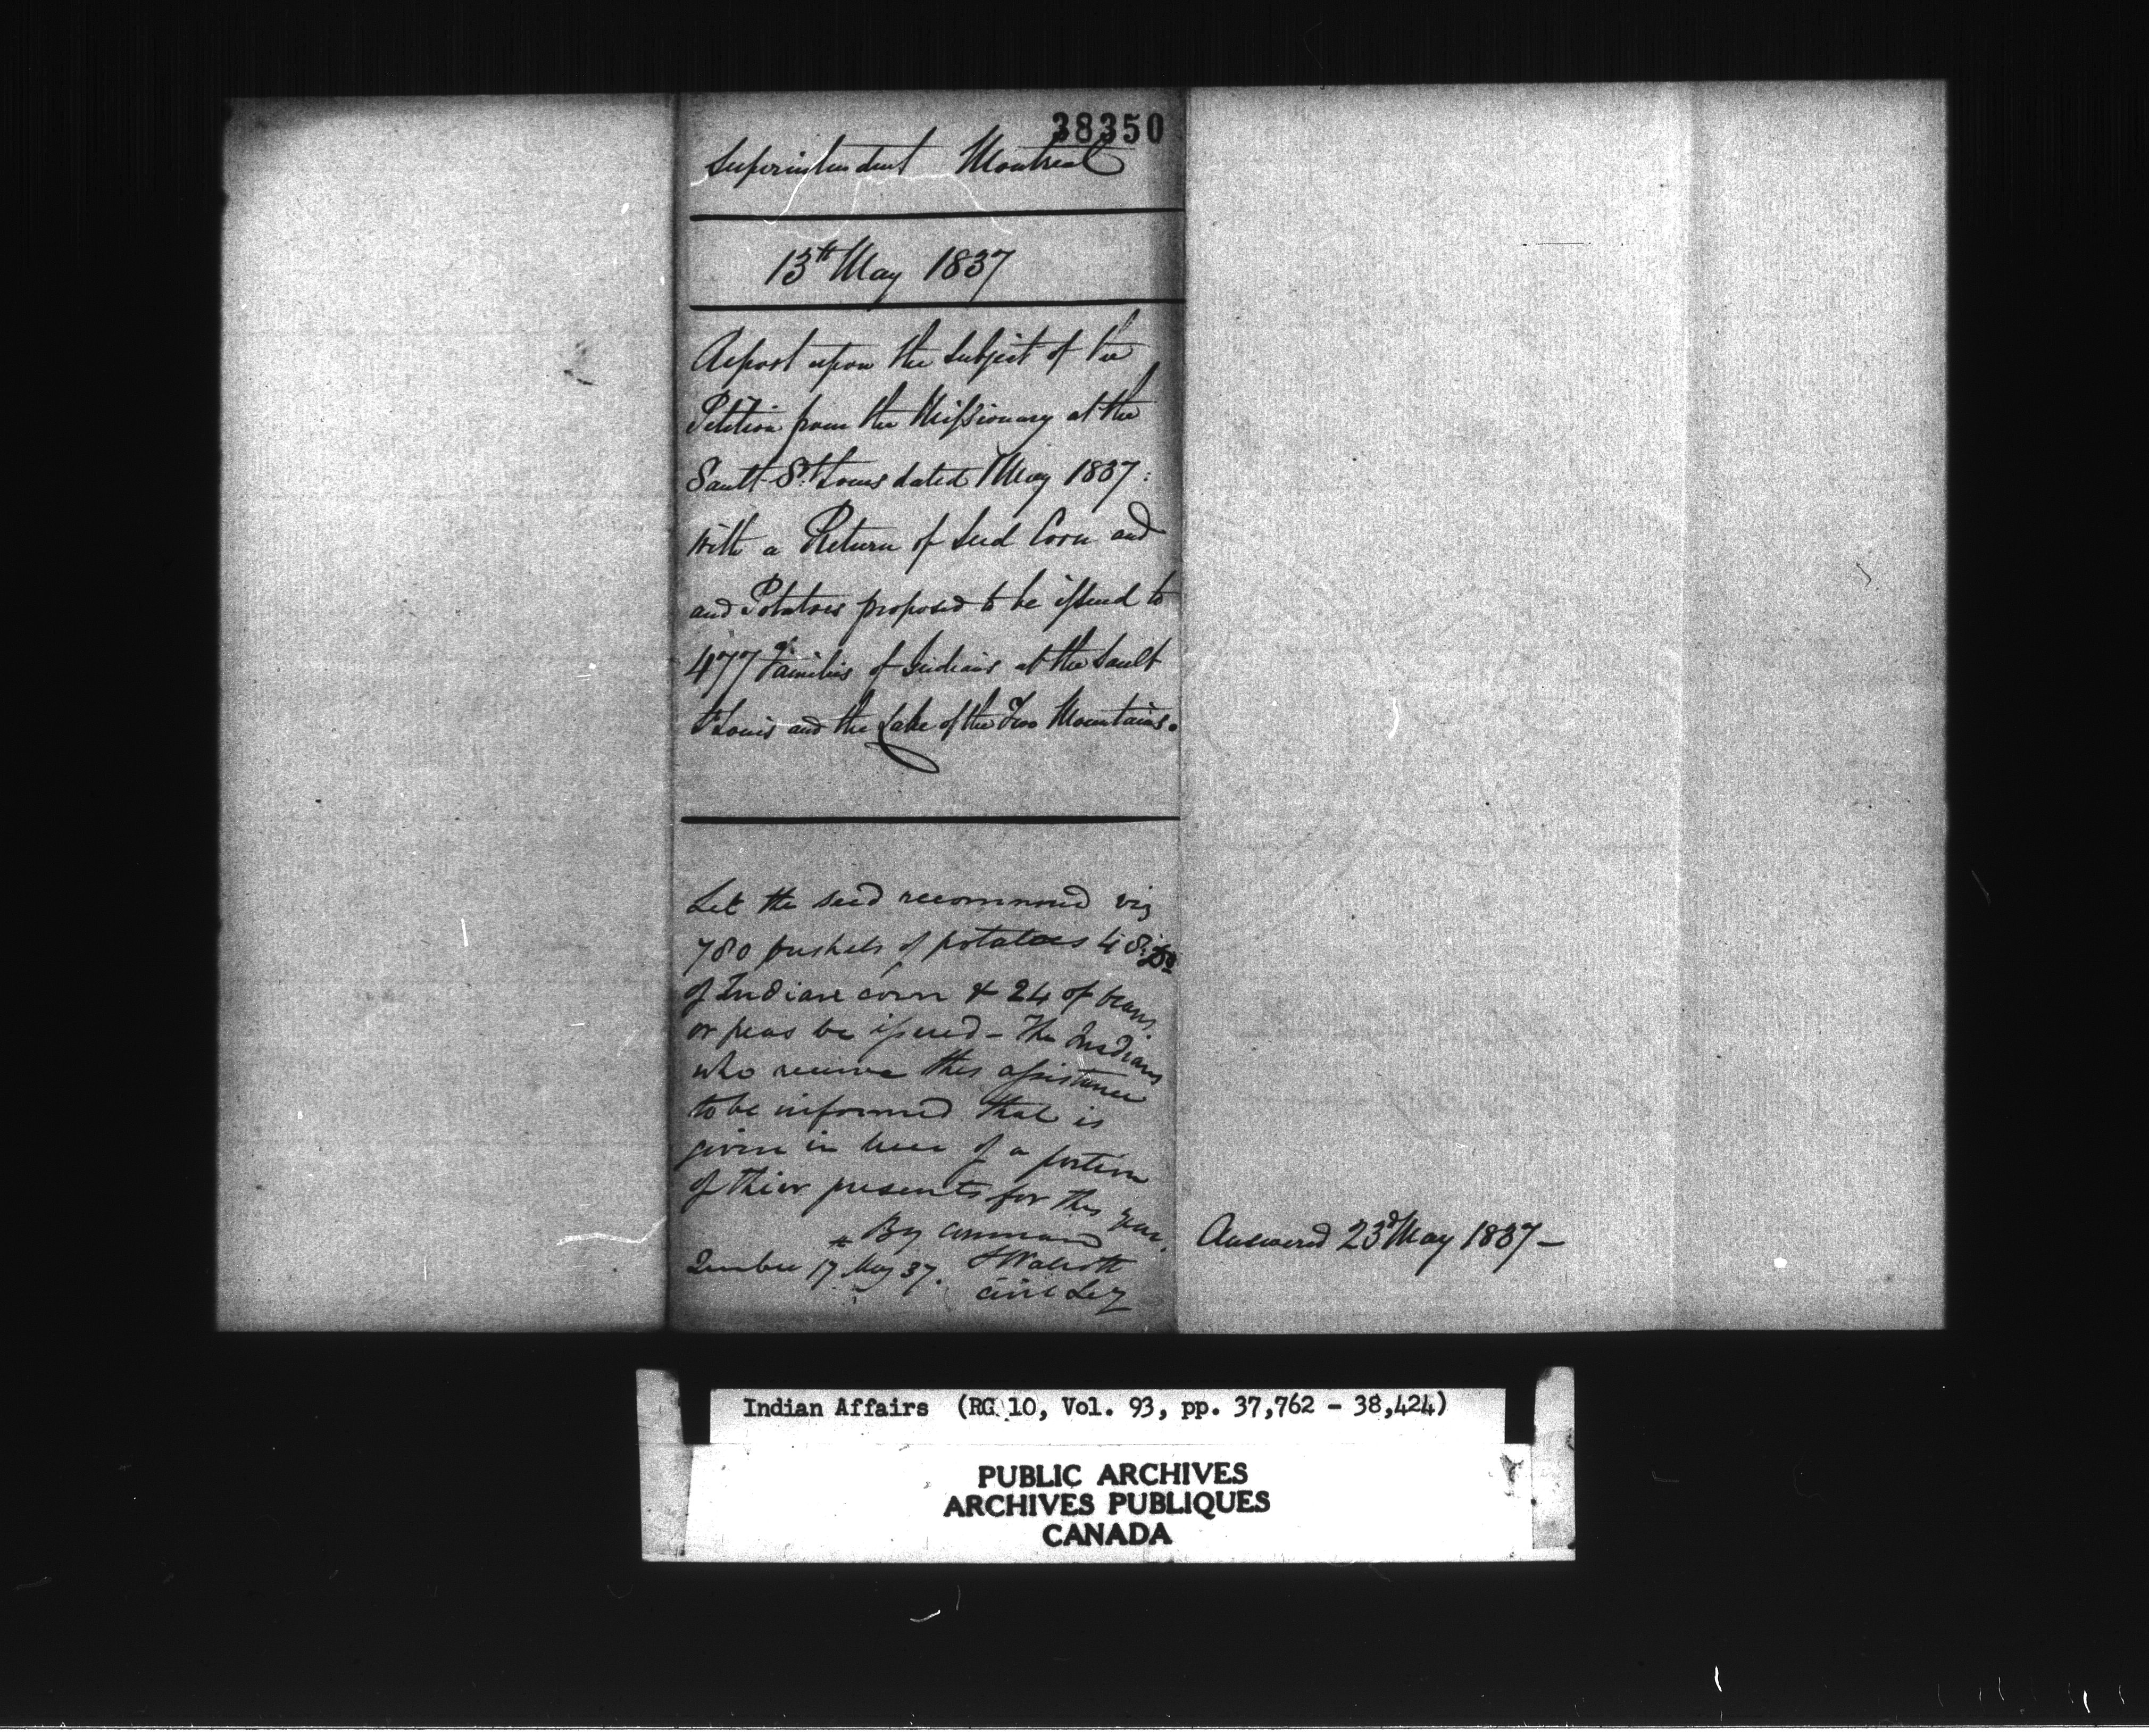 38350
Superintendent Montreal
13th May 1837
Report upon the Subject of the
Petition from the Missionary at the
Sault St. Louis dated 1 May 1837:
With a Return of Seed Corn and
and Potatoes proposed to be issued to
477 Families of Indians at the Sault
St Louis and the Lake of the Two Mountains.
Let the seed recommend viz
780 bushels of potatoes 48 Do
of Indian corn & 24 of beans
or peas be issued - The Indians
who receive this assistance
to be informed that is
given in lieu of a portion
of thier presents for this year.
By command
Quebec 17 May 37. S Walcott
Civil Secy
Answered 23d May 1837 -
Indian Affairs (RG 10, Vol. 93, pp. 37,762 - 38,424)
PUBLIC ARCHIVES
ARCHIVES PUBLIQUES
CANADA